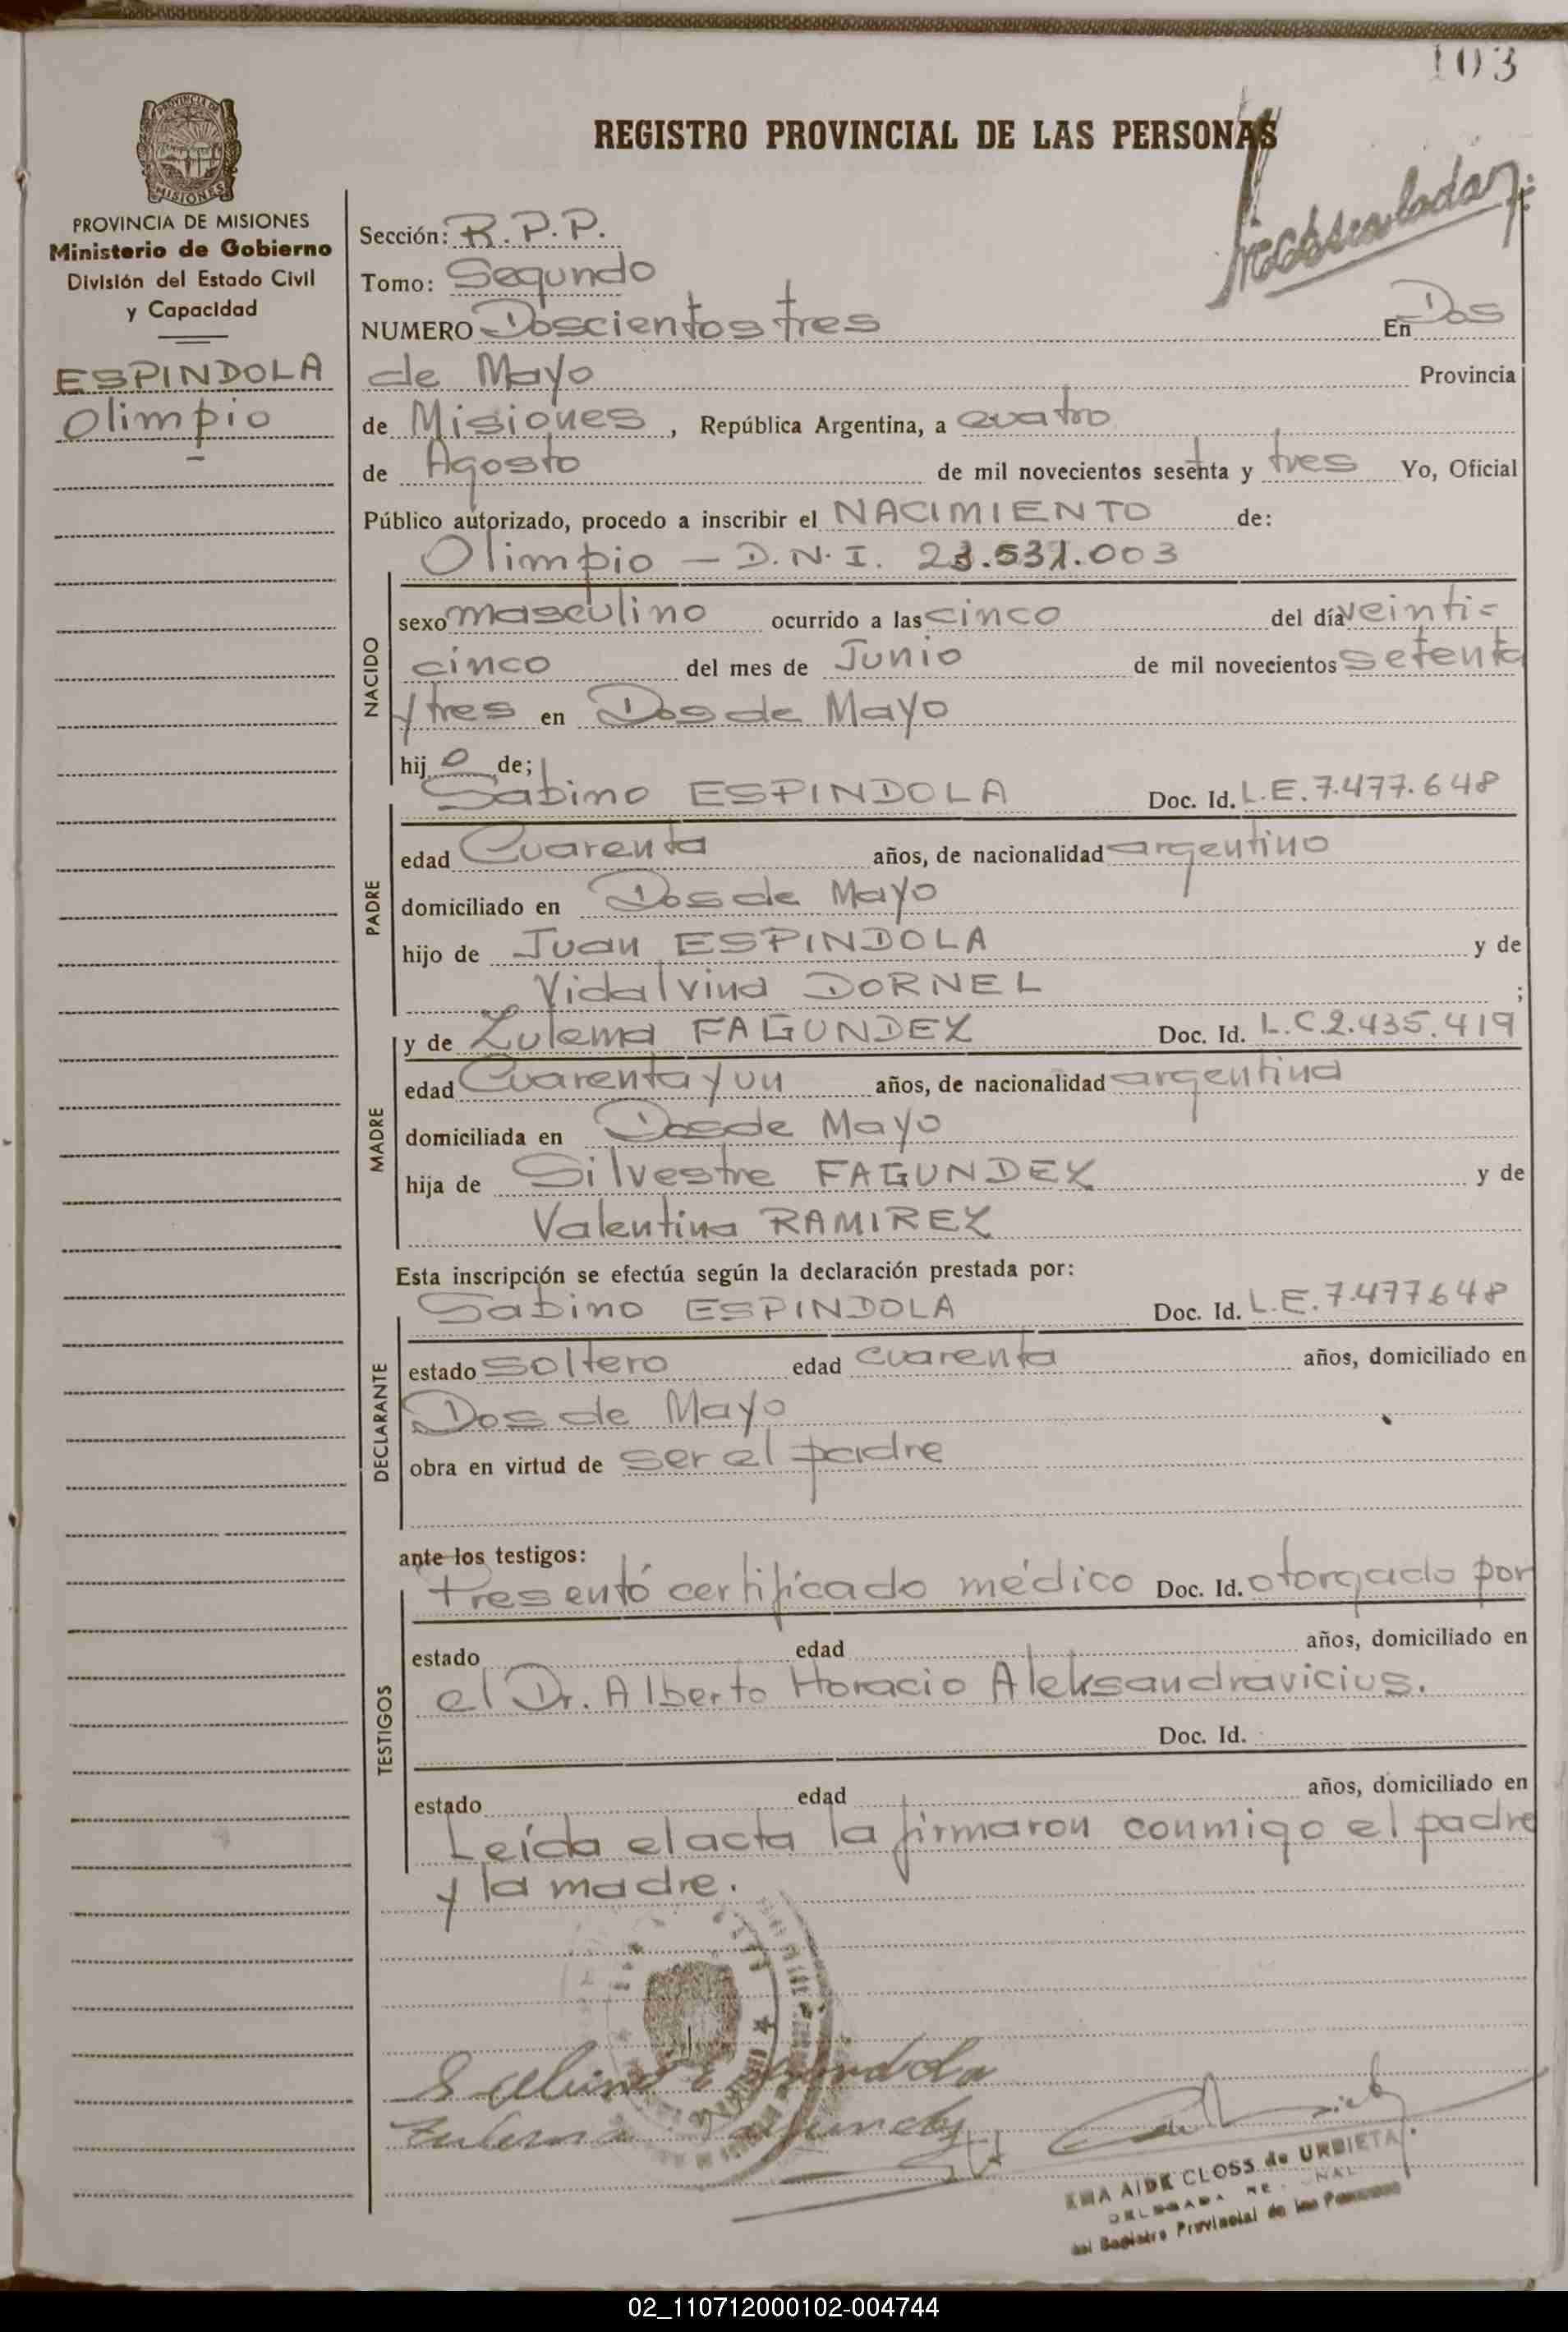 103
REGISTRO PROVINCIAL DE LAS PERSONAS
PROVINCIA DE MISIONES
Ministerio de Gobierno
División del Estado Civil
y Capacidad
ESPINDOLA
Olimpio
Sección: R.P.P.
Tomo: Segundo
NUMERO Doscientos tres En Dos
de Mayo Provincia
de Misiones, República Argentina, a cuatro
de Agosto de mil novecientos sesenta y tres Yo, Oficial
Público autorizado, procedo a inscribir el NACIMIENTO de:
Olimpio — D.N.I. 23.531.003
NACIDO
sexo masculino ocurrido a las cinco del día veinti=
cinco del mes de Junio de mil novecientos setenta
y tres en Dos de Mayo
hijo de;
PADRE
Sabino ESPINDOLA Doc. Id. L.E. 7.477.648
edad Cuarenta años, de nacionalidad argentino
domiciliado en Dos de Mayo
hijo de Juan ESPINDOLA y de
Vidalvina DORNEL ;
MADRE
y de Zulema FAGUNDEZ Doc. Id. L.C. 2.435.419
edad Cuarenta y un años, de nacionalidad argentina
domiciliada en Dos de Mayo
hija de Silvestre FAGUNDEZ y de
Valentina RAMIREZ
Esta inscripción se efectúa según la declaración prestada por:
DECLARANTE
Sabino ESPINDOLA Doc. Id. L.E. 7.477.648
estado soltero edad cuarenta años, domiciliado en
Dos de Mayo
obra en virtud de ser el padre
ante los testigos:
TESTIGOS
Presentó certificado médico Doc. Id. otorgado por
estado edad años, domiciliado en
el Dr. Alberto Horacio Aleksandravicius.
Doc. Id.
estado edad años, domiciliado en
Leída el acta la firmaron conmigo el padre
y la madre.
Sabino Espindola
Zulema Fagundez
AIDE CLOSS de URBIETA
DELEGADA
del Registro Provincial de las Personas
02_110712000102-004744